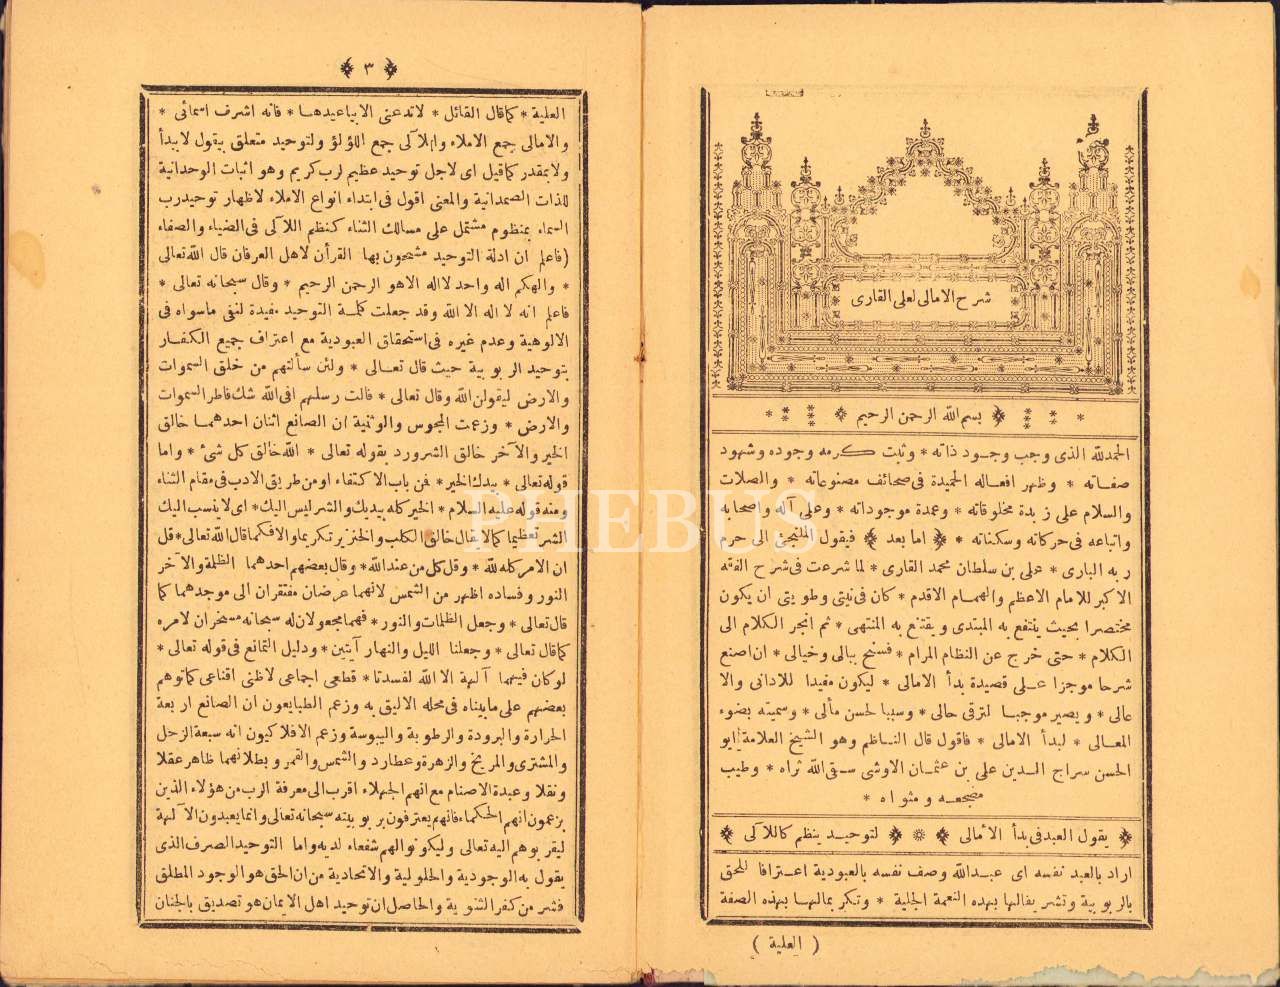 شرح الامالى لعلى القارى
بسم الله الرحمن الرحيم
الحمدلله الذى وجب وجود ذاته * وثبت كرمه وجوده وشهود
صفاته * وظهر افعاله الحميدة فى صحائف مصنوعاته * والصلات
والسلام على زبدة مخلوقاته * وعمدة موجوداته * وعلى آله واصحابه
واتباعه فى حركاته وسكناته * اما بعد فيقول الملتجئ الى حرم
ربه البارى * على بن سلطان محمد القارى * لما شرعت فى شرح الفقه
الاكبر للامام الاعظم والهمام الاقدم * كان فى نيتى وطويتى ان يكون
مختصرا بحيث ينتفع به المبتدى ويقتنع به المنتهى * ثم انجر الكلام الى
الكلام * حتى خرج عن النظام المرام * فسنح ببالى وخيالى * ان اصنع
شرحا موجزا على قصيدة بدأ الامالى * ليكون مفيدا للادانى والا
عالى * ويصير موجبا لترقى حالى * وسببا لحسن مآلى * وسميته بضوء
المعالى * لبدأ الامالى * فاقول قال الناظم وهو الشيخ العلامة ابو
الحسن سراج الدين على بن عثمان الاوشى سقى الله ثراه * وطيب
مضجعه ومثواه *
يقول العبد فى بدأ الأمالى * لتوحيد بنظم كاللآلى
اراد بالعبد نفسه اى عبدالله وصف نفسه بالعبودية اعترافا للحق
بالربوبية وتشريفالها بهذه النعمة الجلية * وتكريمالها بهذه الصفة
( العلية )
٣
العلية * كما قال القائل * لاتدعنى الا بياعبدها * فانه اشرف اسمائى *
والامالى جمع الاملاء واللآلى جمع اللؤلؤ ولتوحيد متعلق بيقول لا ببدأ
ولا بمقدر كما قيل اى لاجل توحيد عظيم لرب كريم وهو اثبات الوحدانية
للذات الصمدانية والمعنى اقول فى ابتداء انواع الاملاء لاظهار توحيد رب
السماء بمنظوم مشتمل على مسالك الثناء كنظم اللآلى فى الضياء والصفاء
(فاعلم ان ادلة التوحيد مشحون بها القرأن لاهل العرفان قال الله تعالى
* والهكم اله واحد لا اله الا هو الرحمن الرحيم * وقال سبحانه تعالى *
فاعلم انه لا اله الا الله وقد جعلت كلمة التوحيد مفيدة لنفى ماسواه فى
الالوهية وعدم غيره فى استحقاق العبودية مع اعتراف جميع الكفار
بتوحيد الربوبية حيث قال تعالى * ولئن سألتهم من خلق السموات
والارض ليقولن الله وقال تعالى * قالت رسلهم افى الله شك فاطر السموات
والارض * وزعمت المجوس والوثنية ان الصانع اثنان احدهما خالق
الخير والآخر خالق الشرورد بقوله تعالى * الله خالق كل شئ * واما
قوله تعالى * بيدك الخير * فمن باب الاكتفاء او من طريق الادب فى مقام الثناء
ومنه قوله عليه السلام * الخير كله بيديك والشر ليس اليك * اى لا ينسب اليك
الشر تعظيما كما لا يقال خالق الكلب والخنزير تكريما والا فكما قال الله تعالى * قل
ان الامر كله لله * وقل كل من عند الله * وقال بعضهم احدهما الظلمة والآخر
النور وفساده اظهر من الشمس لانهما عرضان مفتقران الى موجدهما كما
قال تعالى * وجعل الظلمات والنور * فهما مجعولان له سبحانه مسخران لامره
كما قال تعالى * وجعلنا الليل والنهار آيتين * ودليل التمانع فى قوله تعالى *
لو كان فيهما آلهة الا الله لفسدتا * قطعى اجماعى لاظنى اقناعى كما توهم
بعضهم على ما بيناه فى محله الاليق به وزعم الطبايعون ان الصانع اربعة
الحرارة والبرودة والرطوبة واليبوسة وزعم الافلاكيون انه سبعة الزحل
والمشترى والمريخ والزهرة وعطارد والشمس والقمر وبطلانهما ظاهر عقلا
ونقلا وعبدة الاصنام مع انهم الجهلاء اقرب الى معرفة الرب من هؤلاء الذين
يزعمون انهم الحكماء فانهم يعترفون بربوبيته سبحانه تعالى وانما يعبدون الآلهة
ليقربوهم اليه تعالى وليكونوالهم شفعاء لديه واما التوحيد الصرف الذى
يقول به الوجودية والحلولية والاتحادية من ان الحق هو الوجود المطلق
فشر من كفر الثنوية والحاصل ان توحيد اهل الايمان هو تصديق بالجنان
PHEBUS